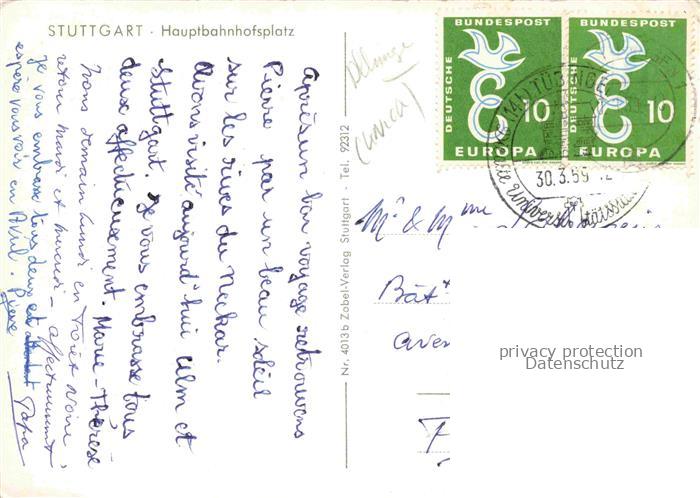 STUTTGART · Hauptbahnhofsplatz
Après un bon voyage retrouvons
Pierre par un beau soleil
sur les rives du Neckar.
Avons visité aujourd'hui Ulm et
Stuttgart. Je vous embrasse tous
deux affectueusement. Marie-Thérèse
Irons demain lundi en Forêt Noire,
retour mardi et mercredi - affectueusement
Papa
je vous embrasse tous deux et
espère vous voir en Avril. Pierre
Nr. 4013b Zobel-Verlag Stuttgart · Tel. 22312
DEUTSCHE
BUNDESPOST
10
EUROPA
DEUTSCHE
BUNDESPOST
10
EUROPA
TÜBINGEN
30.3.59
Mr & Mme
Bât
aven
privacy protection
Datenschutz